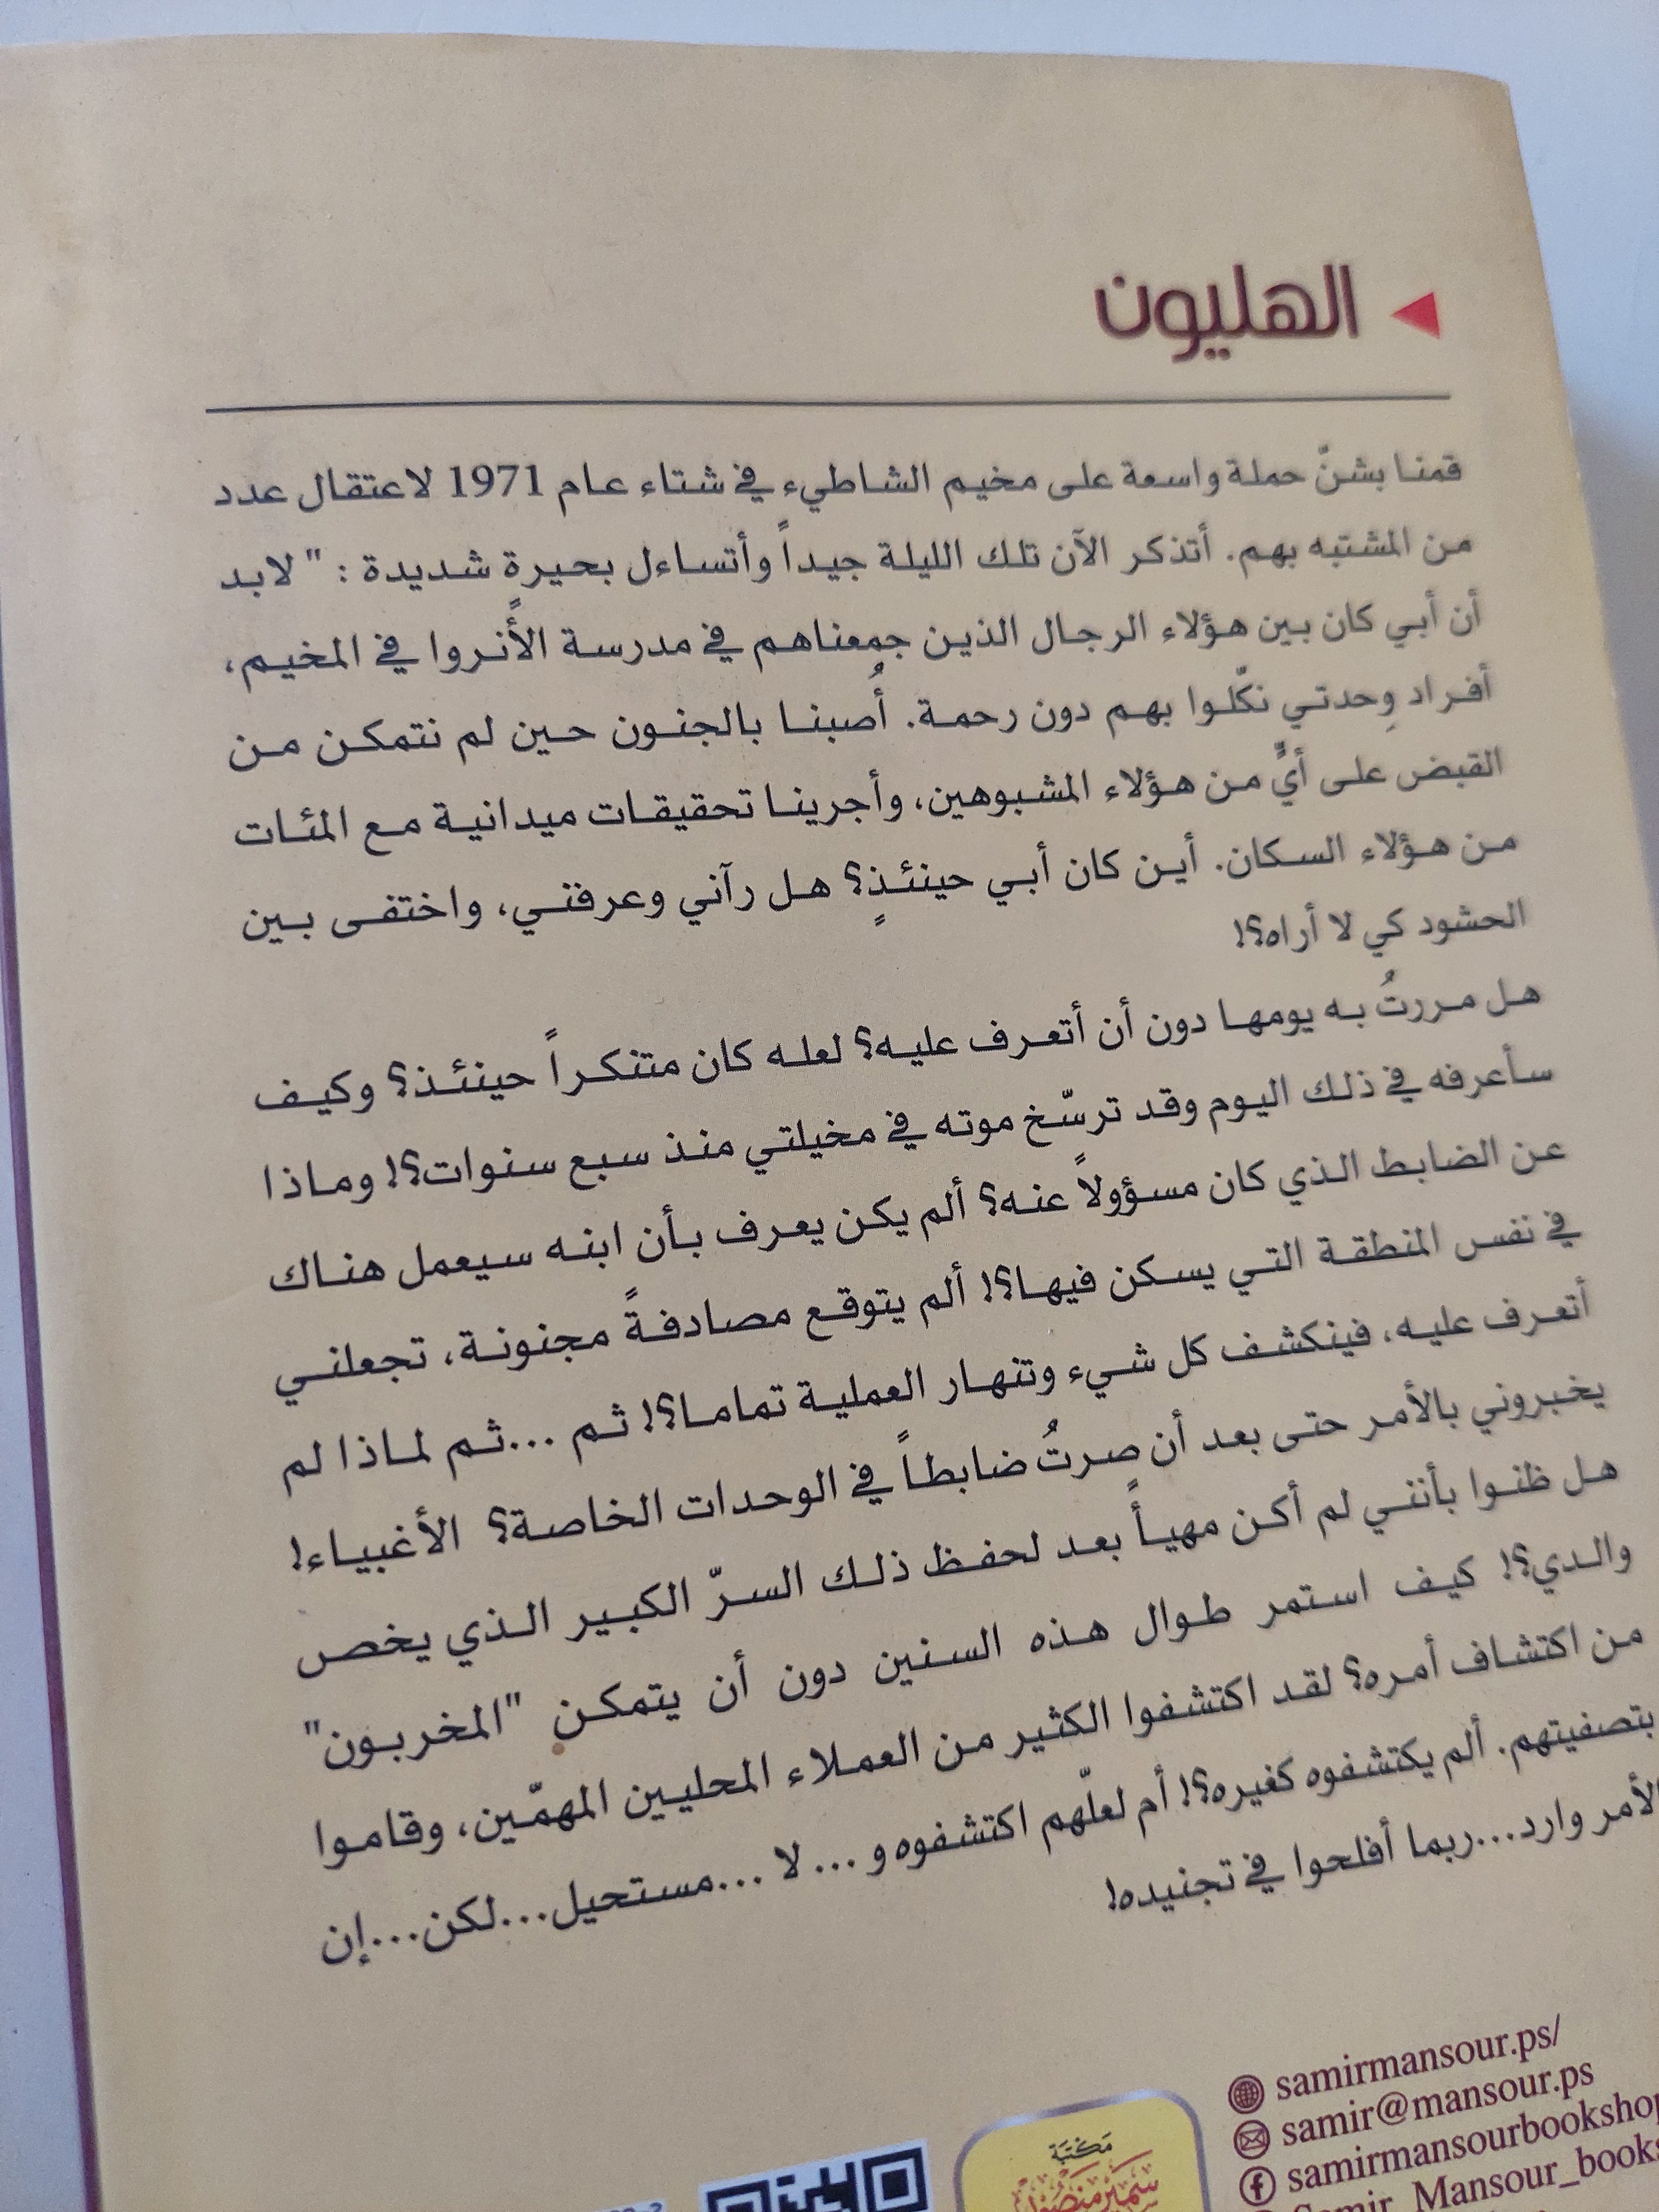 الهليون
قمنا بشنّ حملة واسعة على مخيم الشاطيء في شتاء عام 1971 لاعتقال عدد
من المشتبه بهم. أتذكر الآن تلك الليلة جيداً وأتساءل بحيرة شديدة : " لابد
أن أبي كان بين هؤلاء الرجال الذين جمعناهم في مدرسة الأنروا في المخيم،
أفراد وِحدتي نكّلوا بهم دون رحمة. أُصبنا بالجنون حين لم نتمكن من
القبض على أيٍّ من هؤلاء المشبوهين، وأجرينا تحقيقات ميدانية مع المئات
من هؤلاء السكان. أين كان أبي حينئذٍ؟ هل رآني وعرفني، واختفى بين
الحشود كي لا أراه؟!
هل مررتُ به يومها دون أن أتعرف عليه؟ لعله كان متنكراً حينئذ؟ وكيف
سأعرفه في ذلك اليوم وقد ترسّخ موته في مخيلتي منذ سبع سنوات؟! وماذا
عن الضابط الذي كان مسؤولاً عنه؟ ألم يكن يعرف بأن ابنه سيعمل هناك
في نفس المنطقة التي يسكن فيها؟! ألم يتوقع مصادفةً مجنونة، تجعلني
أتعرف عليه، فينكشف كل شيء وتنهار العملية تماما؟! ثم ...ثم لماذا لم
يخبروني بالأمر حتى بعد أن صرتُ ضابطاً في الوحدات الخاصة؟ الأغبياء!
هل ظنوا بأنني لم أكن مهيأً بعد لحفظ ذلك السرّ الكبير الذي يخص
والدي؟! كيف استمر طوال هذه السنين دون أن يتمكن "المخربون"
من اكتشاف أمره؟ لقد اكتشفوا الكثير من العملاء المحليين المهمّين، وقاموا
بتصفيتهم. ألم يكتشفوه كغيره؟! أم لعلّهم اكتشفوه و ... لا ...مستحيل...لكن...إن
الأمر وارد...ربما أفلحوا في تجنيده!
samirmansour.ps/
samir@mansour.ps
samirmansourbookshop
Samir_Mansour_books
مكتبة
سمير منصور